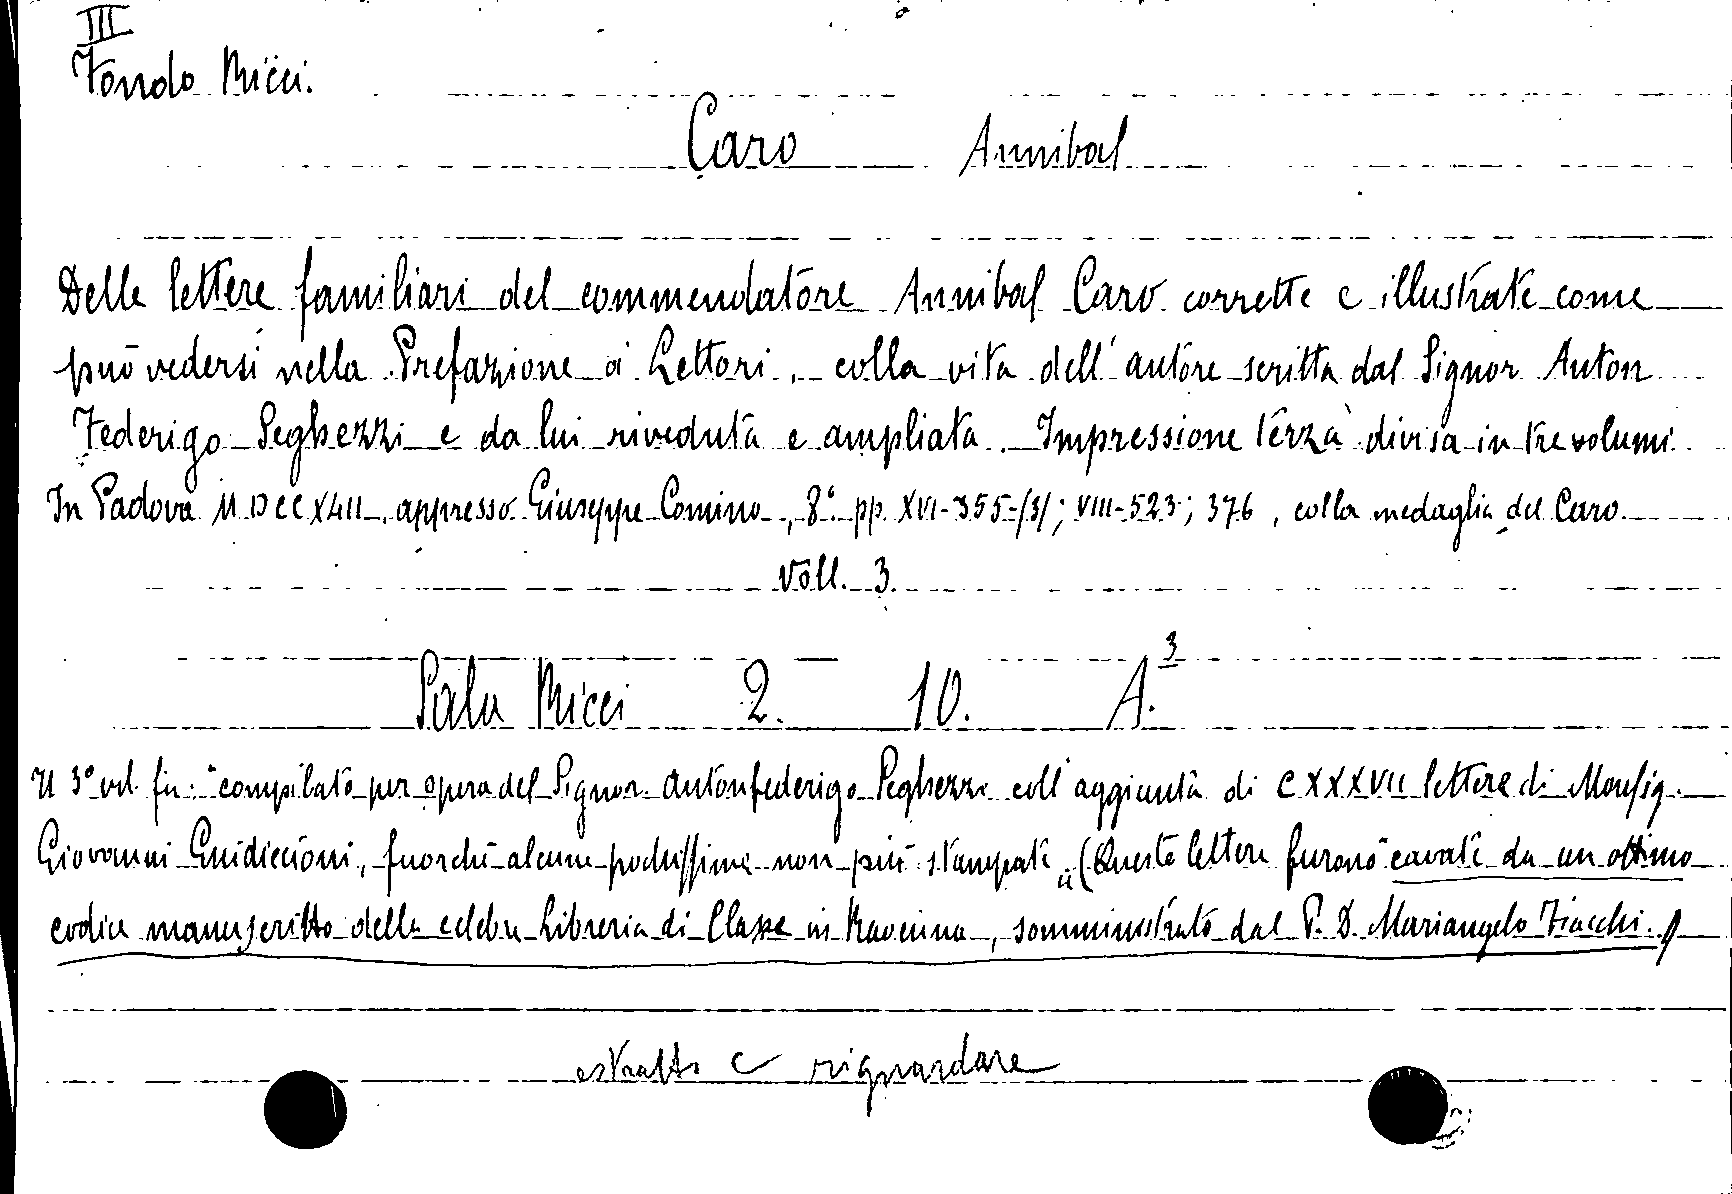 III
Fondo Ricci.
Caro Annibal
Delle lettere familiari del commendatore Annibal Caro corrette e illustrate come
può vedersi nella Prefazione a' Lettori, colla vita dell'autore scritta dal Signor Anton
Federigo Seghezzi e da lui riveduta e ampliata. Impressione terza divisa in tre volumi
In Padova MDCCXLII, appresso Giuseppe Comino, 8° pp. XVI-355-(3); VIII-523; 376, colla medaglia del Caro
Voll. 3.
Sala Ricci 2. 10. A.3
Il 3° vol. fu: "compilato per opera del Signor Antonfederigo Seghezzi coll'aggiunta di CXXXVII lettere di Monsig.
Giovanni Guidiccioni, fuorchè alcune pochissime non più stampate" (Queste lettere furono cavate da un ottimo
codice manuscritto della celebre Libreria di Classe in Ravenna, somministrato dal P. D. Mariangelo Fiacchi.)
estratto e riguardare